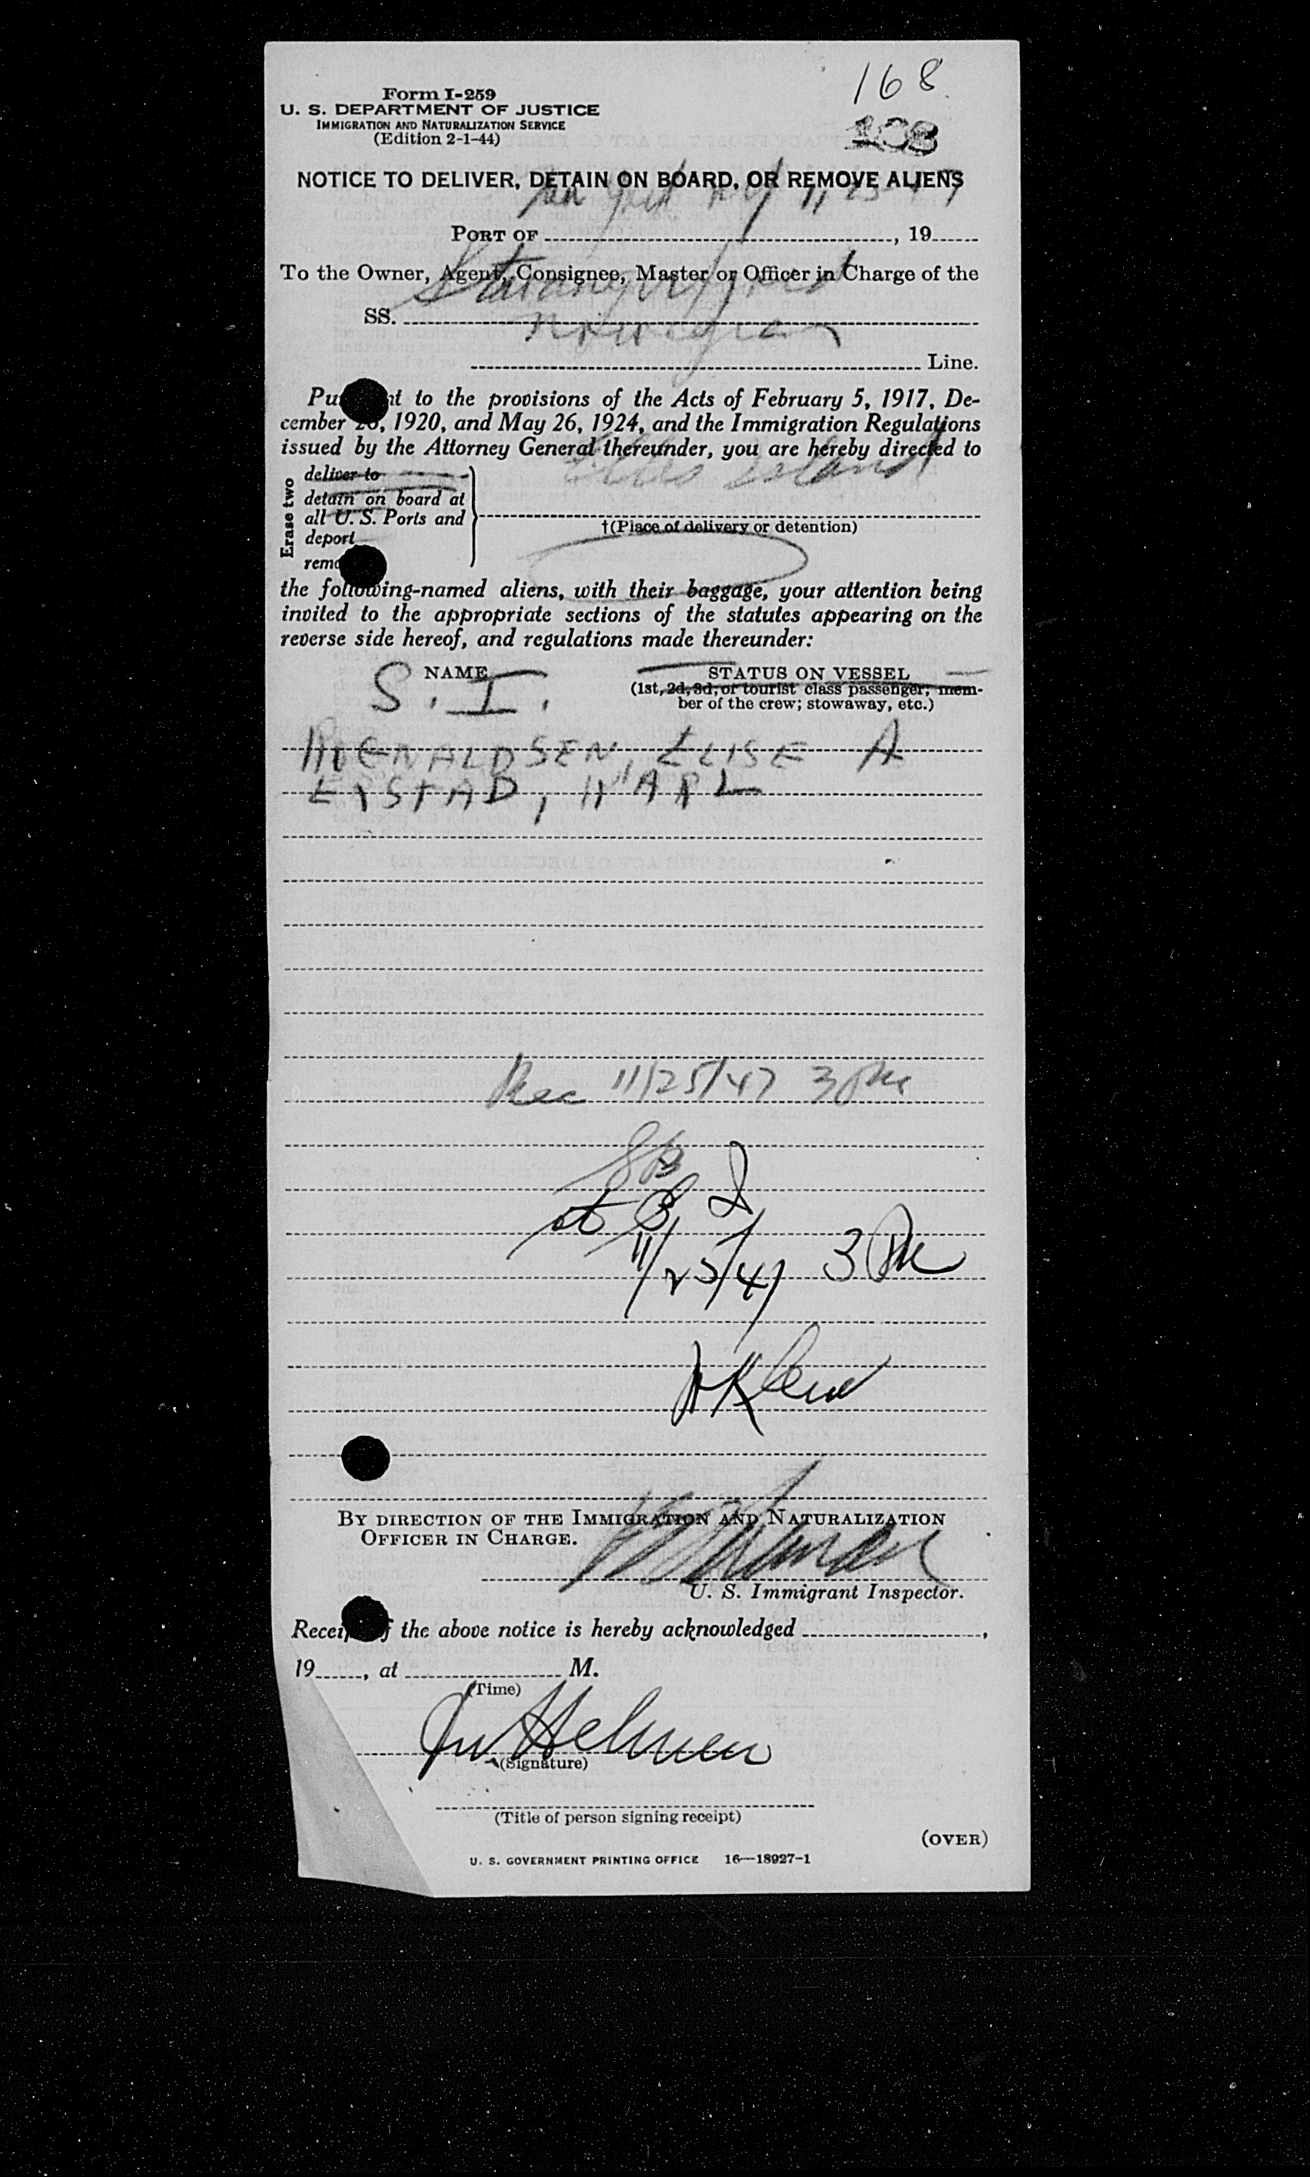 168
108
Form I-259
U. S. DEPARTMENT OF JUSTICE
IMMIGRATION AND NATURALIZATION SERVICE
(Edition 2-1-44)
NOTICE TO DELIVER, DETAIN ON BOARD, OR REMOVE ALIENS
New York N.Y. 11-25-47
PORT OF , 19
To the Owner, Agent, Consignee, Master or Officer in Charge of the
Stavangerfjord
SS.
Norwegian
Line.
to the provisions of the Acts of February 5, 1917, De-
cember , 1920, and May 26, 1924, and the Immigration Regulations
issued by the Attorney General thereunder, you are hereby directed to
Ellis Island
Erase two
deliver to
detain on board at
all U. S. Ports and
deport
†(Place of delivery or detention)
the following-named aliens, with their baggage, your attention being
invited to the appropriate sections of the statutes appearing on the
reverse side hereof, and regulations made thereunder:
NAME STATUS ON VESSEL
S. I. (1st, 2d, 3d, or tourist class passenger; mem-
ber of the crew; stowaway, etc.)
ELISE A
Rec 11/25/47 3 PM
11/25/47 3 PM
BY DIRECTION OF THE IMMIGRATION AND NATURALIZATION
OFFICER IN CHARGE.
U. S. Immigrant Inspector.
the above notice is hereby acknowledged ,
19 , at M.
(Time)
(Signature)
(Title of person signing receipt)
(OVER)
U. S. GOVERNMENT PRINTING OFFICE 16—18927-1